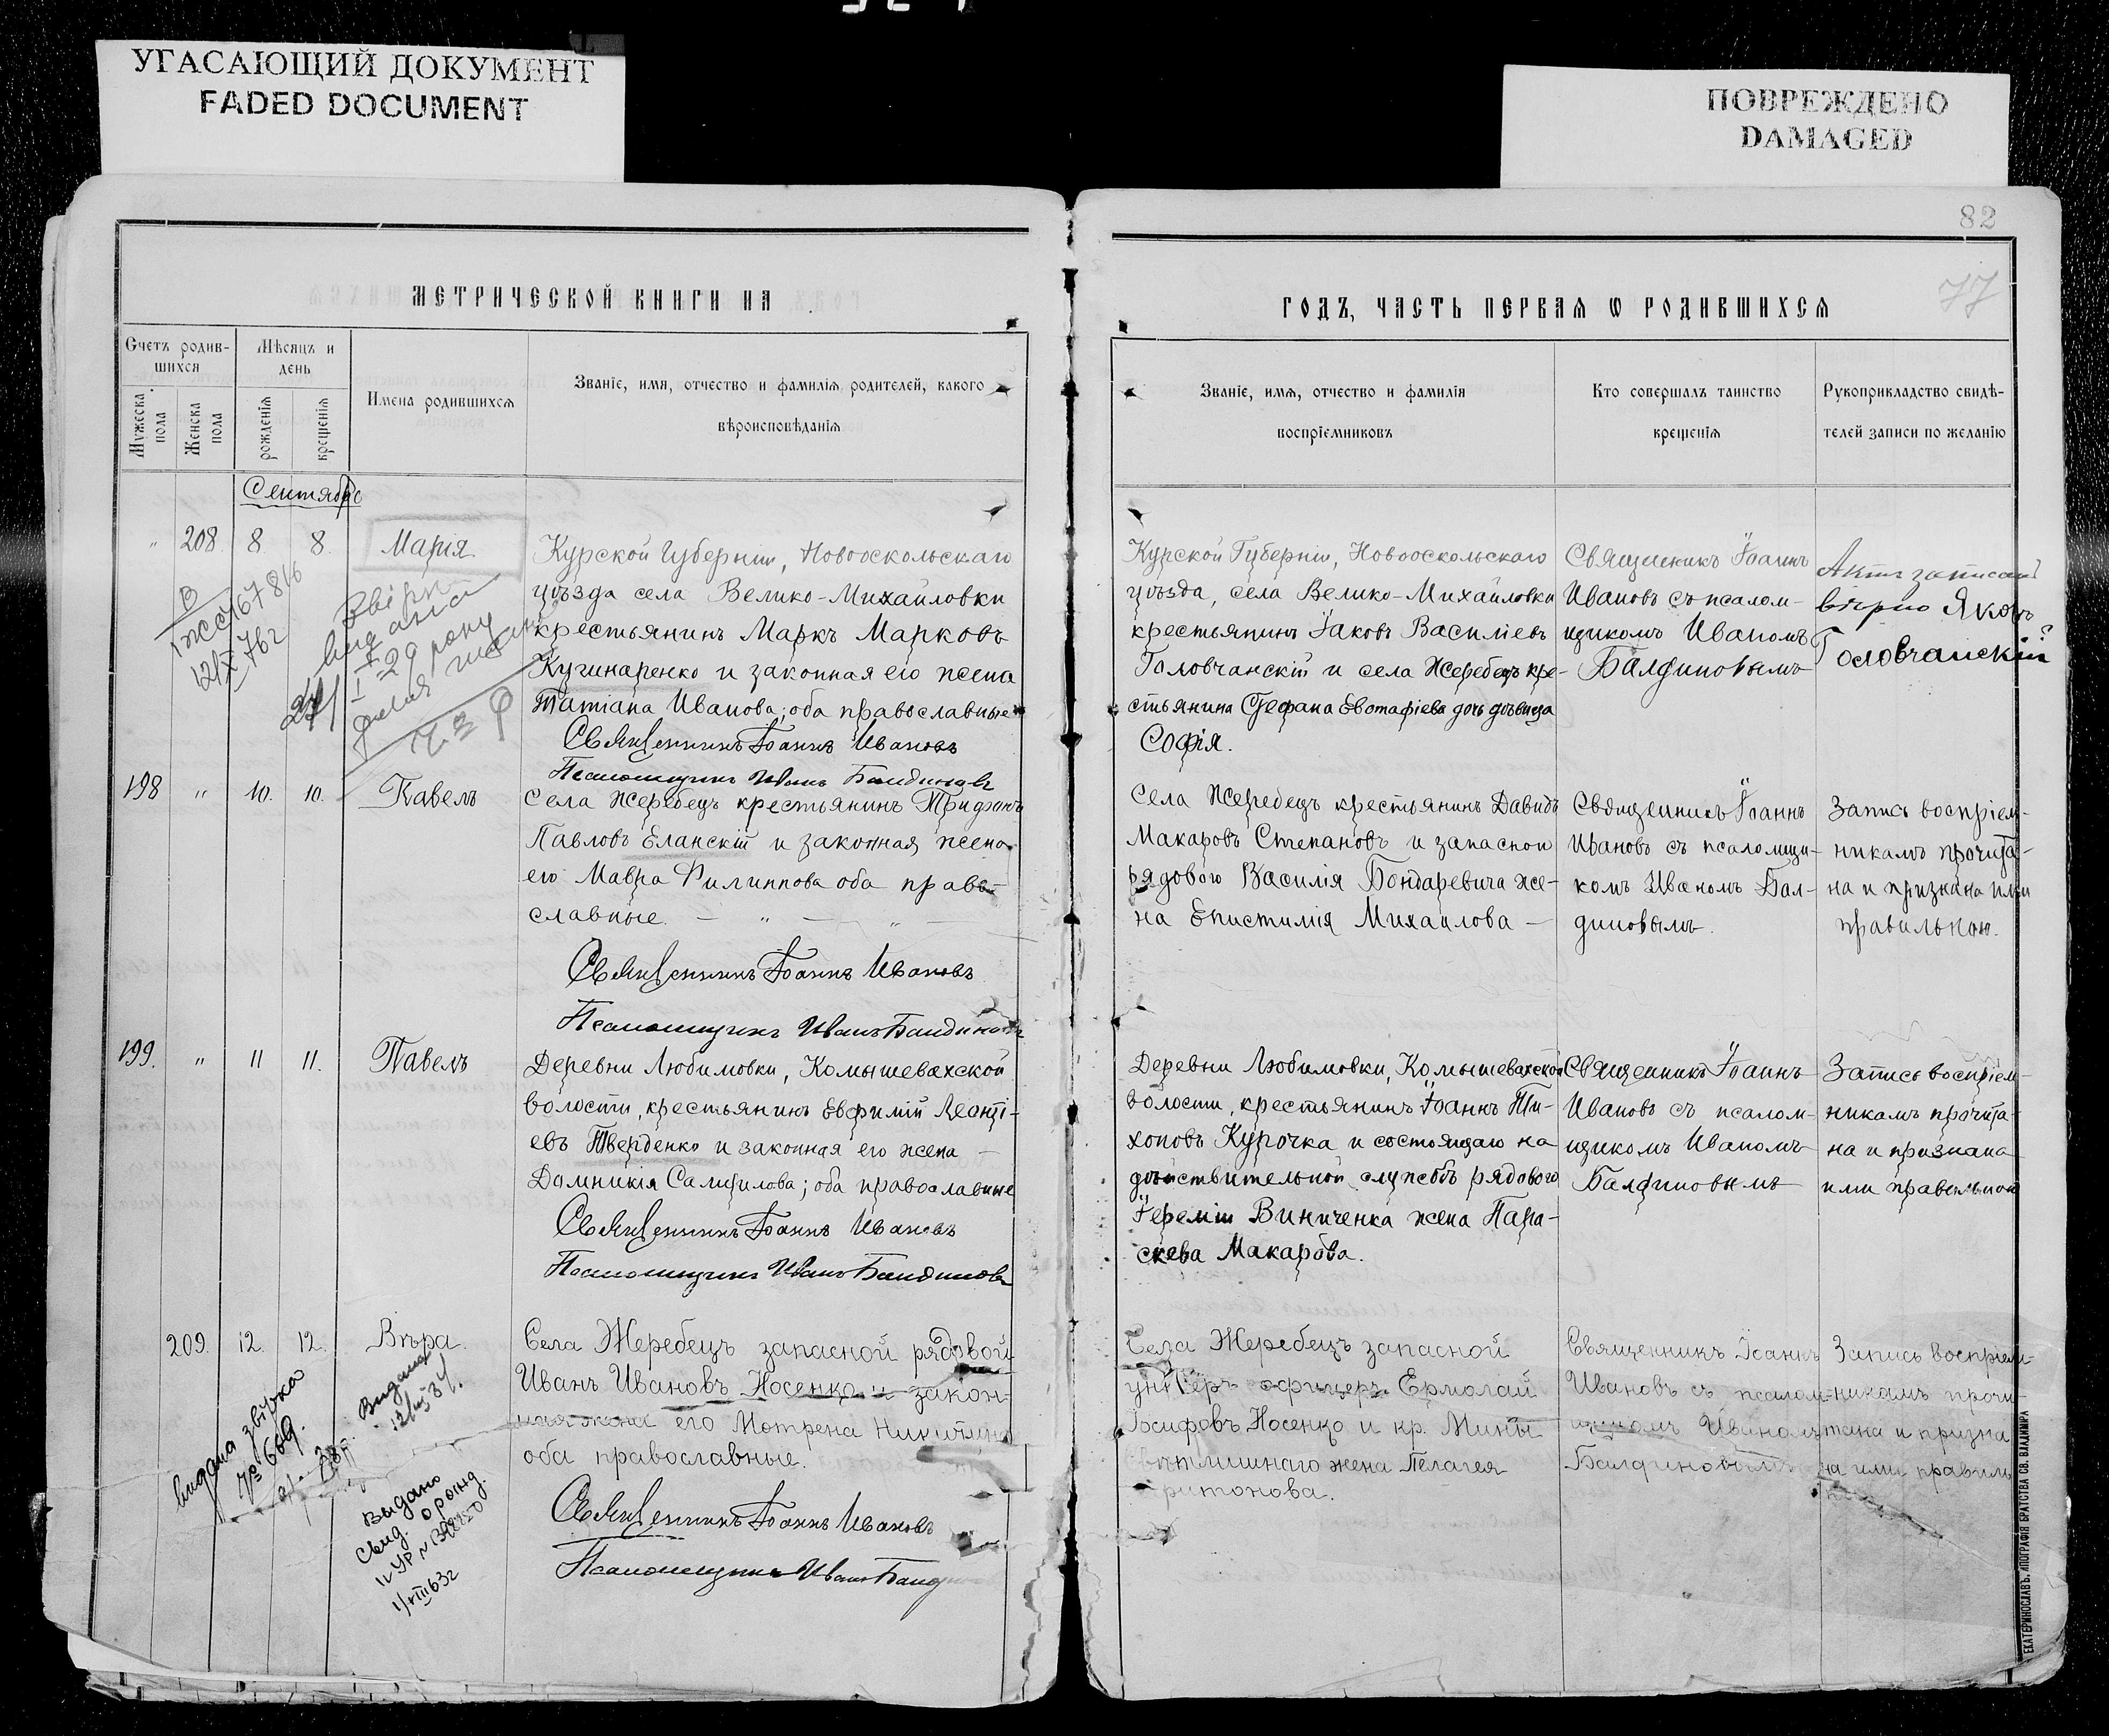 УГАСАЮЩИЙ ДОКУМЕНТ
FADED DOCUMENT
ПОВРЕЖДЕНО
DAMAGED
82
77
МЕТРИЧЕСКОЙ КНИГИ НА
ГОДЪ, ЧАСТЬ ПЕРВАЯ Ѡ РОДИВШИХСЯ
Счетъ родив-
шихся
Мужеска
пола
Женска
пола
Мѣсяцъ и
день
рожденія
крещенія
Имена родившихся
Званіе, имя, отчество и фамилія родителей, какого
вѣроисповѣданія
Званіе, имя, отчество и фамилія
воспріемниковъ
Кто совершалъ таинство
крещенія
Рукоприкладство свидѣ-
телей записи по желанію
Сентябрь
" 208. 8. 8. Марія.
Курской Губерніи, Новооскольскаго
уѣзда села Велико-Михайловки
крестьянинъ Маркъ Марковъ
Кучинаренко и законная его жена
Татіана Иванова; оба православные
Священникъ Іоаннъ Ивановъ
Псаломщикъ Иванъ Балдиновъ
Курской Губерніи, Новооскольскаго
уѣзда, села Велико-Михайловки
крестьянинъ Іаковъ Василіевъ
Головчанскій и села Жеребецъ кре-
стьянина Стефана Евстафіева дочь дѣвица
Софія.
Священникъ Іоаннъ
Ивановъ съ псалом-
щикомъ Иваномъ
Балдиновымъ
Актъ записанъ
вѣрно Яковъ
Головчанскій
12/X 76г
198 " 10. 10. Павелъ
Села Жеребецъ крестьянинъ Трифонъ
Павловъ Еланскій и законная жена
его Мавра Филиппова оба право-
славные. — " — " —
Священникъ Іоаннъ Ивановъ
Псаломщикъ Иванъ Балдиновъ
Села Жеребецъ крестьянинъ Давидъ
Макаровъ Степановъ и запасной
рядового Василія Бондаревича же-
на Епистимія Михаилова —
Священникъ Іоаннъ
Ивановъ съ псаломщи-
комъ Иваномъ Бал-
диновымъ.
Запись воспріем-
никамъ прочита-
на и признана ими
правильною.
199. " 11 11. Павелъ
Деревни Любимовки, Комышевахской
волости, крестьянинъ Евфимій Леонті-
евъ Тверденко и законная его жена —
Домникія Самуилова; оба православные
Священникъ Іоаннъ Ивановъ
Псаломщикъ Иванъ Балдиновъ
Деревни Любимовки, Комышевахской
волости, крестьянинъ Іоаннъ Ти-
хоновъ Курочка и состоящаго на
дѣйствительной службѣ рядового
Іереміи Виниченка жена Пара-
скева Макарова.
Священникъ Іоаннъ
Ивановъ съ псалом-
щикомъ Иваномъ
Балдиновымъ
Запись воспріем-
никамъ прочита-
на и признана
ими правильною
209. 12. 12. Вѣра.
Села Жеребецъ запасной рядовой
Иванъ Ивановъ Носенко и закон-
ная жена его Мотрена Никитина
оба православные.
Священникъ Іоаннъ Ивановъ
Псаломщикъ Иванъ
Села Жеребецъ запасной
унтеръ офицеръ Ермолай
Іосифовъ Носенко и кр. Мины
жена Пелагея
Священникъ Іоаннъ
Ивановъ съ псалом-
щикомъ Иваномъ
Балдиновымъ
Запись воспріем-
никамъ прочи-
тана и призна
на ими правиль
видана звірка
№ 669.
Видана
Выдано
свид. о рожд.
ЕКАТЕРИНОСЛАВЪ, ТИПОГРАФІЯ БРАТСТВА СВ. ВЛАДИМІРА